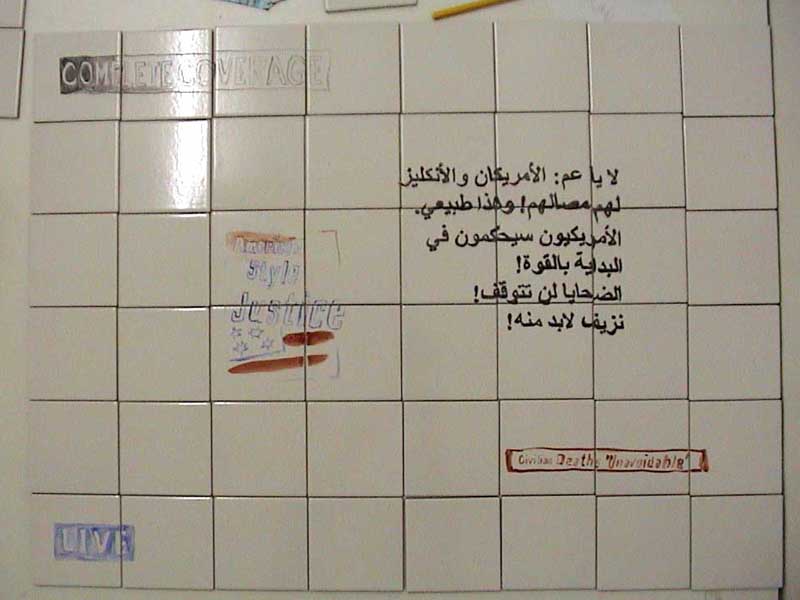 COMPLETE COVERAGE
لا يا عم: الأمريكان والأنكليز
لهم مصالهم! وهذا طبيعي.
الأمريكيون سيحكمون في
البداية بالقوة!
الضحايا لن تتوقف!
نزيف لابد منه!
American
Style
Justice
Civilian Deaths 'Unavoidable'
LIVE